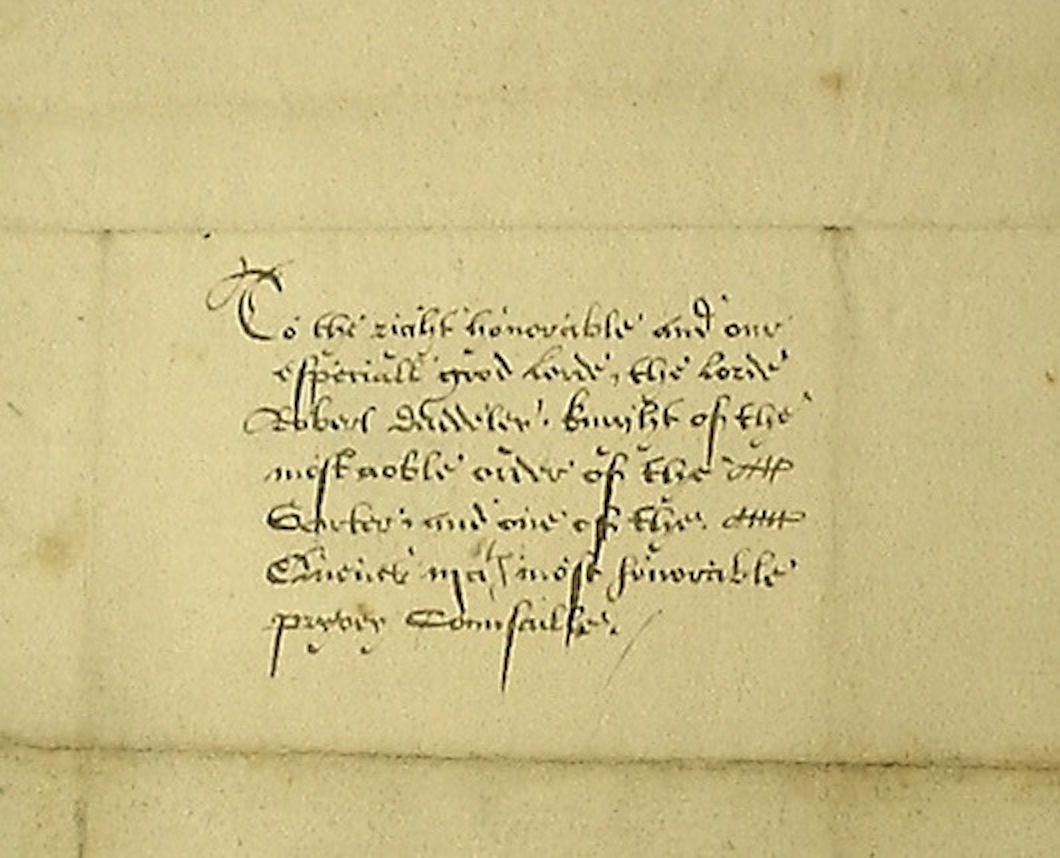 To the right honorable and our
especiall good lorde, the lorde
Robert Duddeley, knyght of the
most noble order of the
Garter, and one of the
Quenes ma^tes most honorable
pryvey Counsaille.